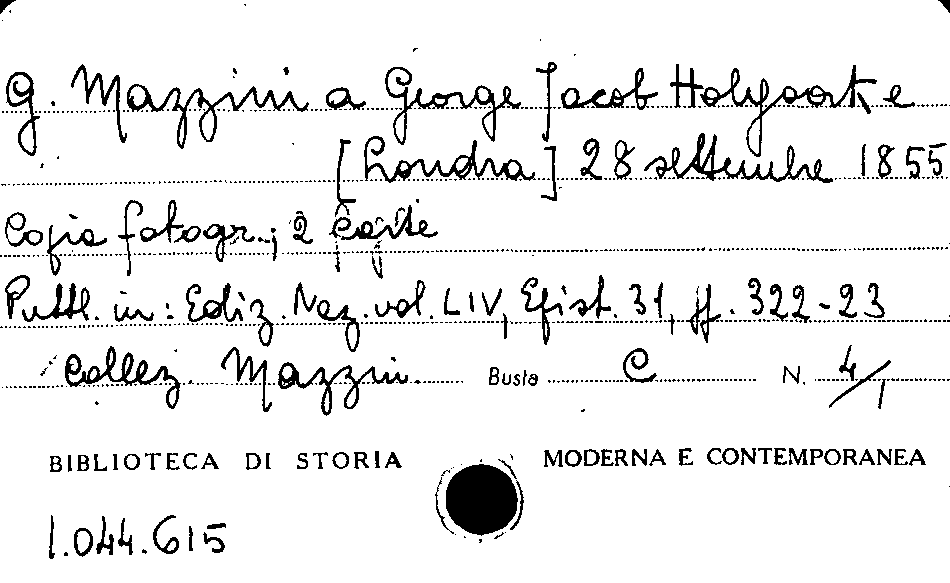 G. Mazzini a George Jacob Holyoake
[Londra] 28 settembre 1855
Copia fotogr.; 2 carte
Pubbl. in: Ediz. Naz. vol. LIV, Epist. 31, pp. 322-23
Collez. Mazzini Busta C N. 4/1
BIBLIOTECA DI STORIA MODERNA E CONTEMPORANEA
1.044.615